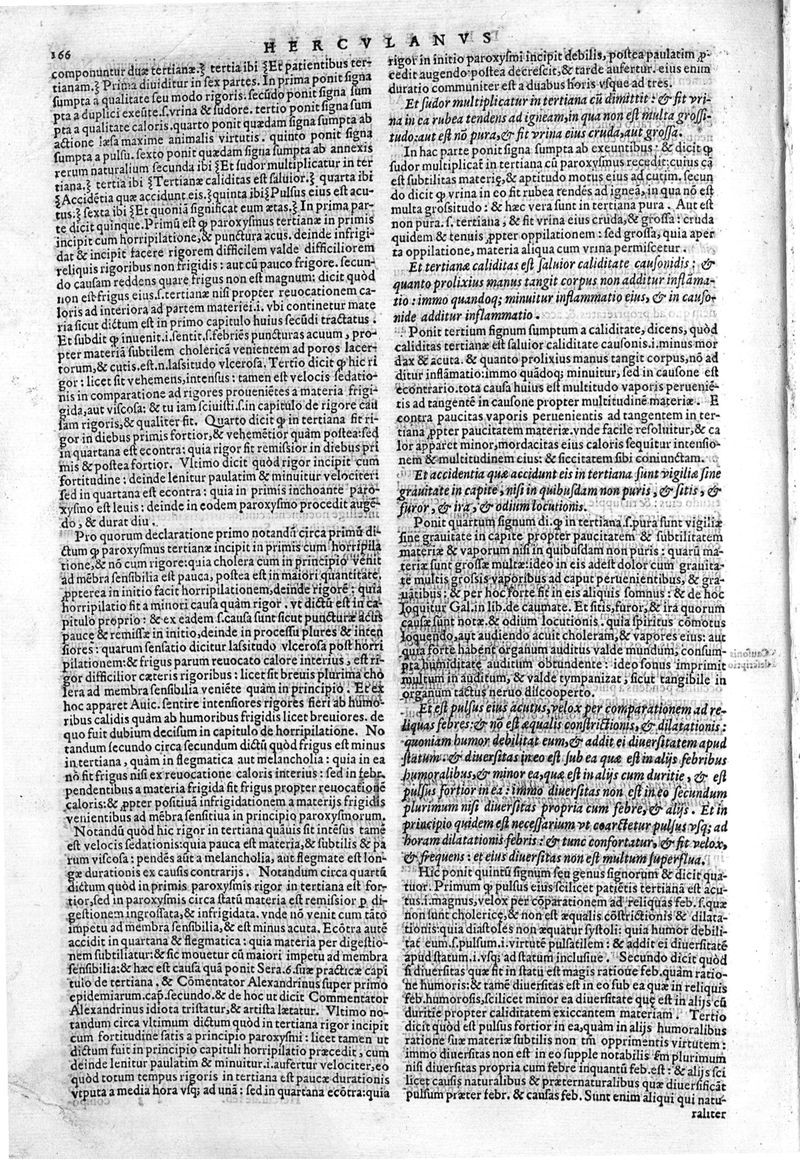 166
HERCVLANVS
componuntur duæ tertianæ.ξ tertia ibi ξEt patientibus ter-
tianam.ξ Prima diuiditur in sex partes. In prima ponit signa
sumpta a qualitate seu modo rigoris. secūdo ponit signa sum
pta a duplici exeūte.s.vrina & sudore. tertio ponit signa sum
pta a qualitate caloris. quarto ponit quædam signa sumpta ab
actione læsa maxime animalis virtutis. quinto ponit signa
sumpta a pulsu. sexto ponit quædam signa sumpta ab annexis
rerum naturalium secunda ibi ξEt sudor multiplicatur in ter
tiana.ξ tertia ibi ξTertianæ caliditas est saluior.ξ quarta ibi
ξAccidētia quæ accidunt eis.ξ quinta ibi ξPulsus eius est acu-
tus.ξ sexta ibi ξEt quoniā significat cum ætas.ξ In prima par-
te dicit quinque. Primū est ꝙ paroxysmus tertianæ in primis
incipit cum horripilatione, & punctura acus. deinde infrigi-
dat & incipit facere rigorem difficilem valde difficiliorem
reliquis rigoribus non frigidis: aut cū pauco frigore. secun-
do causam reddens quare frigus non est magnum: dicit quòd
non est frigus eius.s.tertianæ nisi propter reuocationem ca-
loris ad interiora ad partem materiei.i. vbi continetur mate
ria sicut dictum est in primo capitulo huius secūdi tractatus.
Et subdit ꝙ inuenit.i.sentit.s.febriēs puncturas acuum, pro-
pter materiā subtilem cholericā venientem ad poros lacer-
torum, & cutis. est.n.lassitudo vlcerosa. Tertio dicit ꝙ hic ri
gor: licet sit vehemens, intensus: tamen est velocis sedatio-
nis in comparatione ad rigores prouenietēs a materia frigi-
gida, aut viscosa: & tu iam sciuisti.s.in capitulo de rigore cau
sam rigoris, & qualiter fit. Quarto dicit ꝙ in tertiana fit ri-
gor in diebus primis fortior, & vehemētior quàm postea: sed
in quartana est econtra: quia rigor fit remissior in diebus pri
mis & postea fortior. Vltimo dicit quòd rigor incipit cum
fortitudine: deinde lenitur paulatim & minuitur velociter:
sed in quartana est econtra: quia in primis inchoante paro-
xysmo est leuis: deinde in eodem paroxysmo procedit augē-
do, & durat diu.
Pro quorum declaratione primo notandū circa primū di-
ctum ꝙ paroxysmus tertianæ incipit in primis cum horripila
tione, & nō cum rigore: quia cholera cum in principio venit
ad mēbra sensibilia est pauca, postea est in maiori quantitate,
ꝓpterea in initio facit horripilationem, deinde rigorē: quia
horripilatio fit a minori causa quàm rigor. vt dictū est in ca-
pitulo proprio: & ex eadem s.causa sunt sicut puncturæ acus
paucę & remissæ in initio, deinde in processu plures & inten
siores: quarum sensatio dicitur lassitudo vlcerosa post horri
pilationem: & frigus parum reuocato calore interius, est ri-
gor difficilior cæteris rigoribus: licet sit breuis plurima cho
lera ad membra sensibilia veniēte quàm in principio. Et ex
hoc apparet Auic. sentire intensiores rigores fieri ab humo-
ribus calidis quàm ab humoribus frigidis licet breuiores. de
quo fuit dubium decisum in capitulo de horripilatione. No
tandum secundo circa secundum dictū quòd frigus est minus
in tertiana, quàm in flegmatica aut melancholia: quia in ea
nō fit frigus nisi ex reuocatione caloris interius: sed in febr.
pendentibus a materia frigida fit frigus propter reuocationē
caloris: & ꝓpter positiuā infrigidationem a materijs frigidis
venientibus ad mēbra sensitiua in principio paroxysmorum.
Notandū quòd hic rigor in tertiana quāuis sit intēsus tamē
est velocis sedationis: quia pauca est materia, & subtilis & pa
rum viscosa: pendēs aūt a melancholia, aut flegmate est lon-
gæ durationis ex causis contrarijs. Notandum circa quartū
dictum quòd in primis paroxysmis rigor in tertiana est for-
tior, sed in paroxysmis circa statū materia est remissior ꝓ di-
gestionem ingrossata, & infrigidata. vnde nō venit cum tāto
impetu ad membra sensibilia, & est minus acuta. Ecōtra autē
accidit in quartana & flegmatica: quia materia per digestio-
nem subtiliatur: & sic mouetur cū maiori impetu ad membra
sensibilia: & hæc est causa quā ponit Sera.6.suæ practicæ capi
tulo de tertiana. & Cōmentator Alexandrinus super primo
epidemiarum.cap.secundo. & de hoc ut dicit Commentator
Alexandrinus idiota tristatur, & artista lætatur. Vltimo no-
tandum circa vltimum dictum quòd in tertiana rigor incipit
cum fortitudine satis a principio paroxysmi: licet tamen ut
dictum fuit in principio capituli horripilatio præcedit, cum
deinde lenitur paulatim & minuitur.i.aufertur velociter, eo
quòd totum tempus rigoris in tertiana est paucæ durationis
vtputa a media hora vsq; ad unā: sed in quartana ecōtra: quia
rigor in initio paroxysmi incipit debilis, postea paulatim ꝓ-
cedit augendo: postea decrescit, & tarde aufertur. eius enim
duratio communiter est a duabus horis vsque ad tres.
Et sudor multiplicatur in tertiana cū dimittit: & fit vri-
na in ea rubea tendens ad igneam, in qua non est multa grossi-
tudo: aut est nō pura, & fit vrina eius cruda, aut grossa.
In hac parte ponit signa sumpta ab exeuntibus: & dicit ꝙ
sudor multiplicat̄ in tertiana cū paroxysmus recedit: cuius cā
est subtilitas materię, & aptitudo motus eius ad cutim. secun
do dicit ꝙ vrina in eo fit rubea rendēs ad igneā, in qua nō est
multa grossitudo: & hæc vera sunt in tertiana pura. Aut est
non pura.s. tertiana, & fit vrina eius cruda, & grossa: cruda
quidem & tenuis ꝓpter oppilationem: sed grossa, quia aper
ta oppilatione, materia aliqua cum vrina permiscetur.
Et tertianæ caliditas est saluior caliditate causonidis: &
quanto prolixius manus tangit corpus non additur inflāma-
tio: immo quandoq; minuitur inflammatio eius, & in causo-
nide additur inflammatio.
Ponit tertium signum sumptum a caliditate, dicens, quòd
caliditas tertianæ est saluior caliditate causonis.i.minus mor
dax & acuta. & quanto prolixius manus tangit corpus, nō ad
ditur inflāmatio: immo quādoq; minuitur, sed in causone est
econtrario. tota causa huius est multitudo vaporis perueniē-
tis ad tangentē in causone propter multitudinē materiæ. E
contra paucitas vaporis peruenientis ad tangentem in ter-
tiana ꝓpter paucitatem materiæ. vnde facile resoluitur, & ca
lor apparet minor, mordacitas eius caloris sequitur intensio-
nem & multitudinem eius: & siccitatem sibi coniunctam.
Et accidentia quæ accidunt eis in tertiana sunt vigiliæ sine
grauitate in capite, nisi in quibusdam non puris, & sitis, &
furor, & ira, & odium locutionis.
Ponit quartum signum di.ꝙ in tertiana.s.pura sunt vigiliæ
sine grauitate in capite propter paucitatem & subtilitatem
materiæ & vaporum nisi in quibusdam non puris: quarū ma-
teriæ sunt grossæ multæ: ideo in eis adest dolor cum grauita-
te multis grossis vaporibus ad caput peruenientibus, & gra-
uatibus: & per hoc forte fit in eis aliquis somnus: & de hoc
loquitur Gal. in lib. de caumate. Et sitis, furor, & ira quorum
causæ sunt notæ. & odium locutionis. quia spiritus cōmotus
loquendo, aut audiendo acuit choleram, & vapores eius: aut
quia forte habent organum auditus valde mundum, consum-
pta humiditate auditum obtundente: ideo sonus imprimit
multum in auditum, & valde tympanizat, sicut tangibile in
organum tactus neruo discooperto.
Et est pulsus eius acutus, velox per comparationem ad re-
liquas febres: & nō est æqualis constrictionis, & dilatationis:
quoniam humor debilitat eum, & addit ei diuersitatem apud
statum. & diuersitas in eo est sub ea quæ est in alijs febribus
humoralibus, & minor ea, quæ est in alijs cum duritie, & est
pulsus fortior in ea: immo diuersitas non est in eo secundum
plurimum nisi diuersitas propria cum febre, & alijs. Et in
principio quidem est necessarium vt coarctetur pulsus vsq; ad
horam dilatationis febris: & tunc confortatur, & fit velox,
& frequens: et eius diuersitas non est multum superflua.
Hic ponit quintū signum seu genus signorum & dicit qua-
tuor. Primum ꝙ pulsus eius scilicet patiētis tertianā est acu-
tus.i.magnus, velox per cōparationem ad reliquas feb.s.quæ
non sunt cholericę, & non est æqualis cōstrictionis & dilata-
tionis: quia diastoles non æquatur systoli: quia humor debili-
tat eum.s.pulsum.i.virtutē pulsatilem: & addit ei diuersitatē
apud statum.i.vsq; ad statum inclusiue. Secundo dicit quòd
si diuersitas quæ fit in statu est magis ratione feb. quàm ratio-
ne humoris: & tamē diuersitas est in eo sub ea quæ in reliquis
feb. humorosis, scilicet minor ea diuersitate quę est in alijs cū
duritie propter caliditatem exiccantem materiam. Tertio
dicit quòd est pulsus fortior in ea, quàm in alijs humoralibus
ratione suæ materiæ subtilis non tm̄ opprimentis virtutem:
immo diuersitas non est in eo supple notabilis s̄m plurimum
nisi diuersitas propria cum febre inquantū feb. est: & alijs sci
licet causis naturalibus & præternaturalibus quæ diuersificāt
pulsum præter febr. & causas feb. Sunt enim aliqui qui natu-
raliter